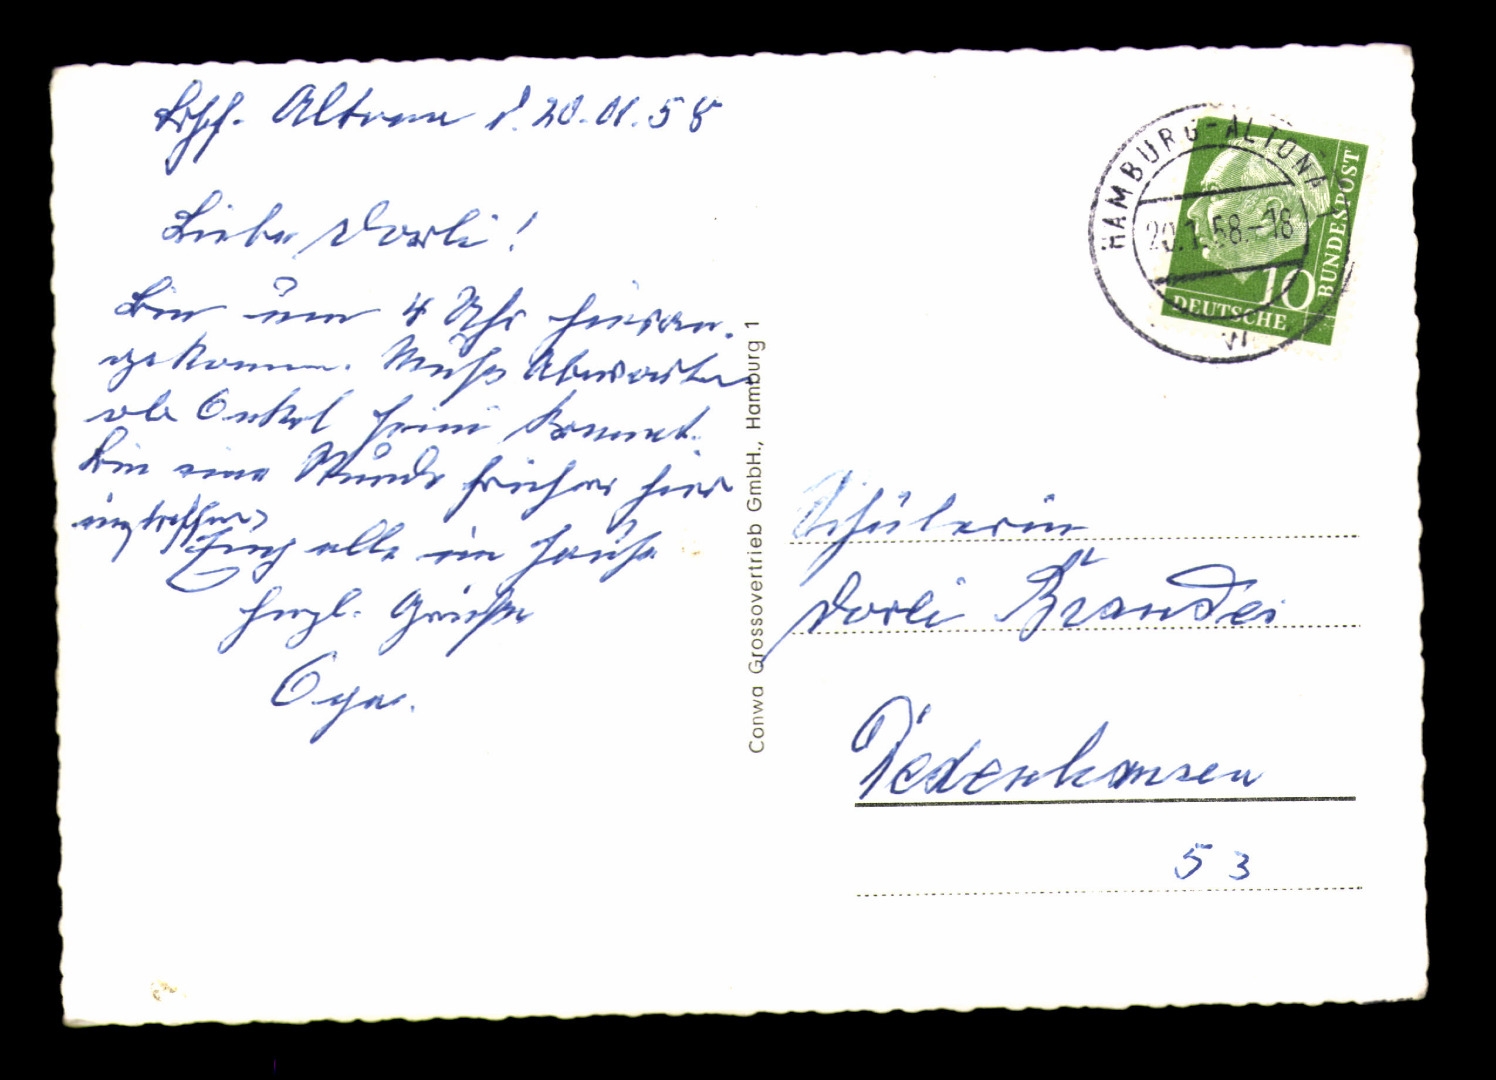 Bhf. Altona d. 20.01.58
Liebe Dorli!
Bin um 4 Uhr hier an-
gekommen. Muß Abwarten
ob Onkel Heini kommt.
Bin eine Stunde früher hier
eingetroffen
Euch alle im Hause
herzl. Grüße
Opa.
Conwa Grossovertrieb GmbH., Hamburg 1
HAMBURG-ALTONA 1
20.1.58.-18
DEUTSCHE BUNDESPOST
10
Schülerin
Dorli Brandes
Dedenhausen
53